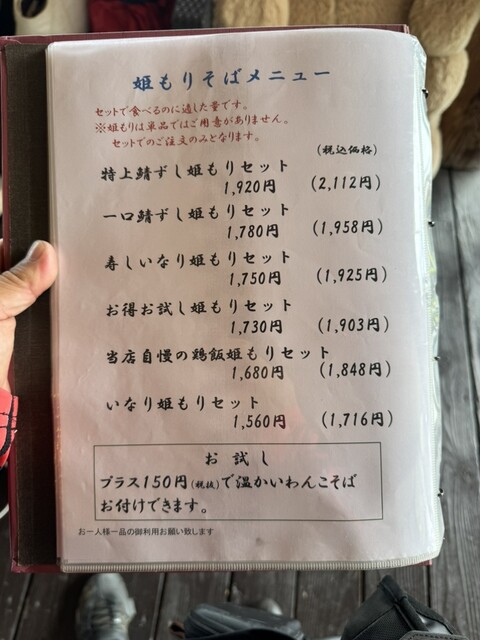 姫もりそばメニュー
セットで食べるのに適した量です。
※姫もりは単品ではご用意がありません。
セットでのご注文のみとなります。
(税込価格)
特上鯖ずし姫もりセット
1,920円 (2,112円)
一口鯖ずし姫もりセット
1,780円 (1,958円)
寿しいなり姫もりセット
1,750円 (1,925円)
お得お試し姫もりセット
1,730円 (1,903円)
当店自慢の鶏飯姫もりセット
1,680円 (1,848円)
いなり姫もりセット
1,560円 (1,716円)
お試し
プラス150円(税抜)で温かいわんこそば
お付けできます。
お一人様一品の御利用お願い致します